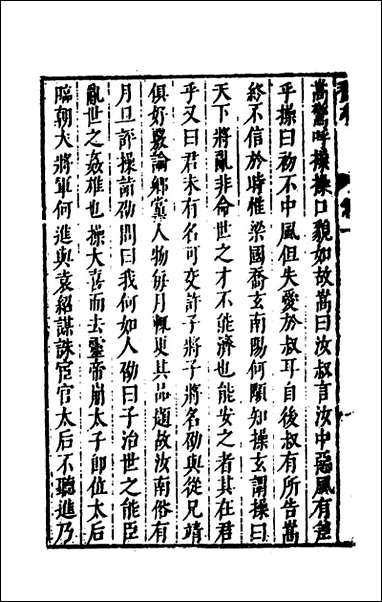 嵩驚呼操操口貌如故嵩曰汝叔言汝中惡風有差
乎操曰初不中風但失愛於叔耳自後叔有所告嵩
終不信於時惟梁國喬玄南陽何顒知操玄謂操曰
天下將亂非命世之才不能濟也能安之者其在君
乎又曰君未有名可交許子將子將名劭與從兄靖
俱好覈論鄉黨人物每月輒更其品題故汝南俗有
月旦評操詣劭問曰我何如人劭曰子治世之能臣
亂世之姦雄也操大喜而去靈帝崩太子即位太后
臨朝大將軍何進與袁紹謀誅宦官太后不聽進乃